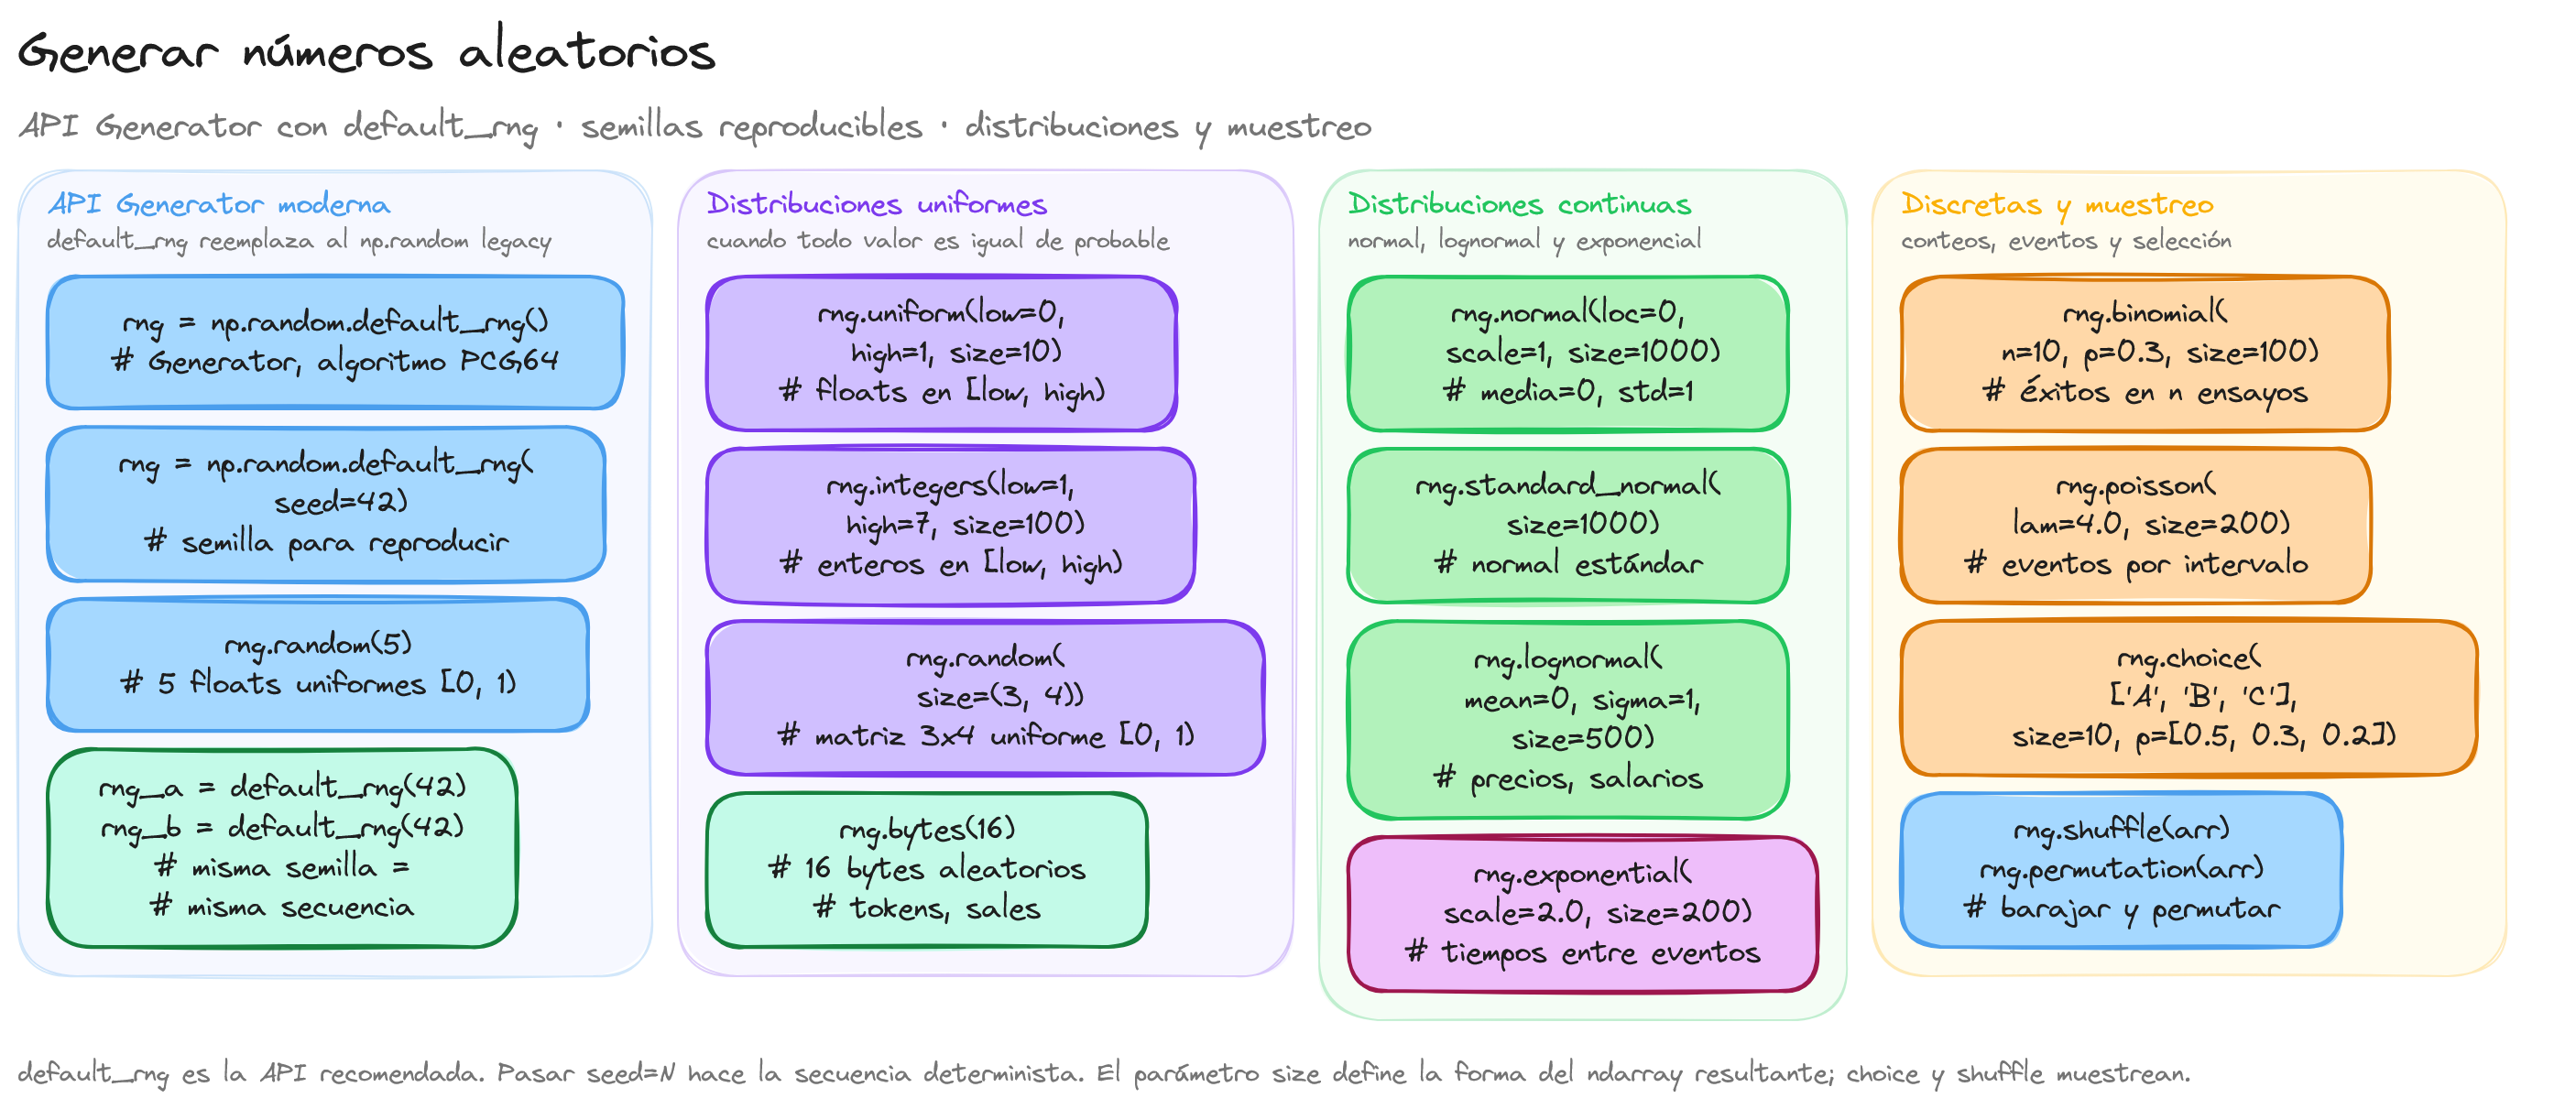 Generar números aleatorios
API Generator con default_rng · semillas reproducibles · distribuciones y muestreo
API Generator moderna
default_rng reemplaza al np.random legacy
rng = np.random.default_rng()
# Generator, algoritmo PCG64
rng = np.random.default_rng(
seed=42)
# semilla para reproducir
rng.random(5)
# 5 floats uniformes [0, 1)
rng_a = default_rng(42)
rng_b = default_rng(42)
# misma semilla =
# misma secuencia
Distribuciones uniformes
cuando todo valor es igual de probable
rng.uniform(low=0,
high=1, size=10)
# floats en [low, high)
rng.integers(low=1,
high=7, size=100)
# enteros en [low, high)
rng.random(
size=(3, 4))
# matriz 3x4 uniforme [0, 1)
rng.bytes(16)
# 16 bytes aleatorios
# tokens, sales
Distribuciones continuas
normal, lognormal y exponencial
rng.normal(loc=0,
scale=1, size=1000)
# media=0, std=1
rng.standard_normal(
size=1000)
# normal estándar
rng.lognormal(
mean=0, sigma=1,
size=500)
# precios, salarios
rng.exponential(
scale=2.0, size=200)
# tiempos entre eventos
Discretas y muestreo
conteos, eventos y selección
rng.binomial(
n=10, p=0.3, size=100)
# éxitos en n ensayos
rng.poisson(
lam=4.0, size=200)
# eventos por intervalo
rng.choice(
['A', 'B', 'C'],
size=10, p=[0.5, 0.3, 0.2])
rng.shuffle(arr)
rng.permutation(arr)
# barajar y permutar
default_rng es la API recomendada. Pasar seed=N hace la secuencia determinista. El parámetro size define la forma del ndarray resultante; choice y shuffle muestrean.